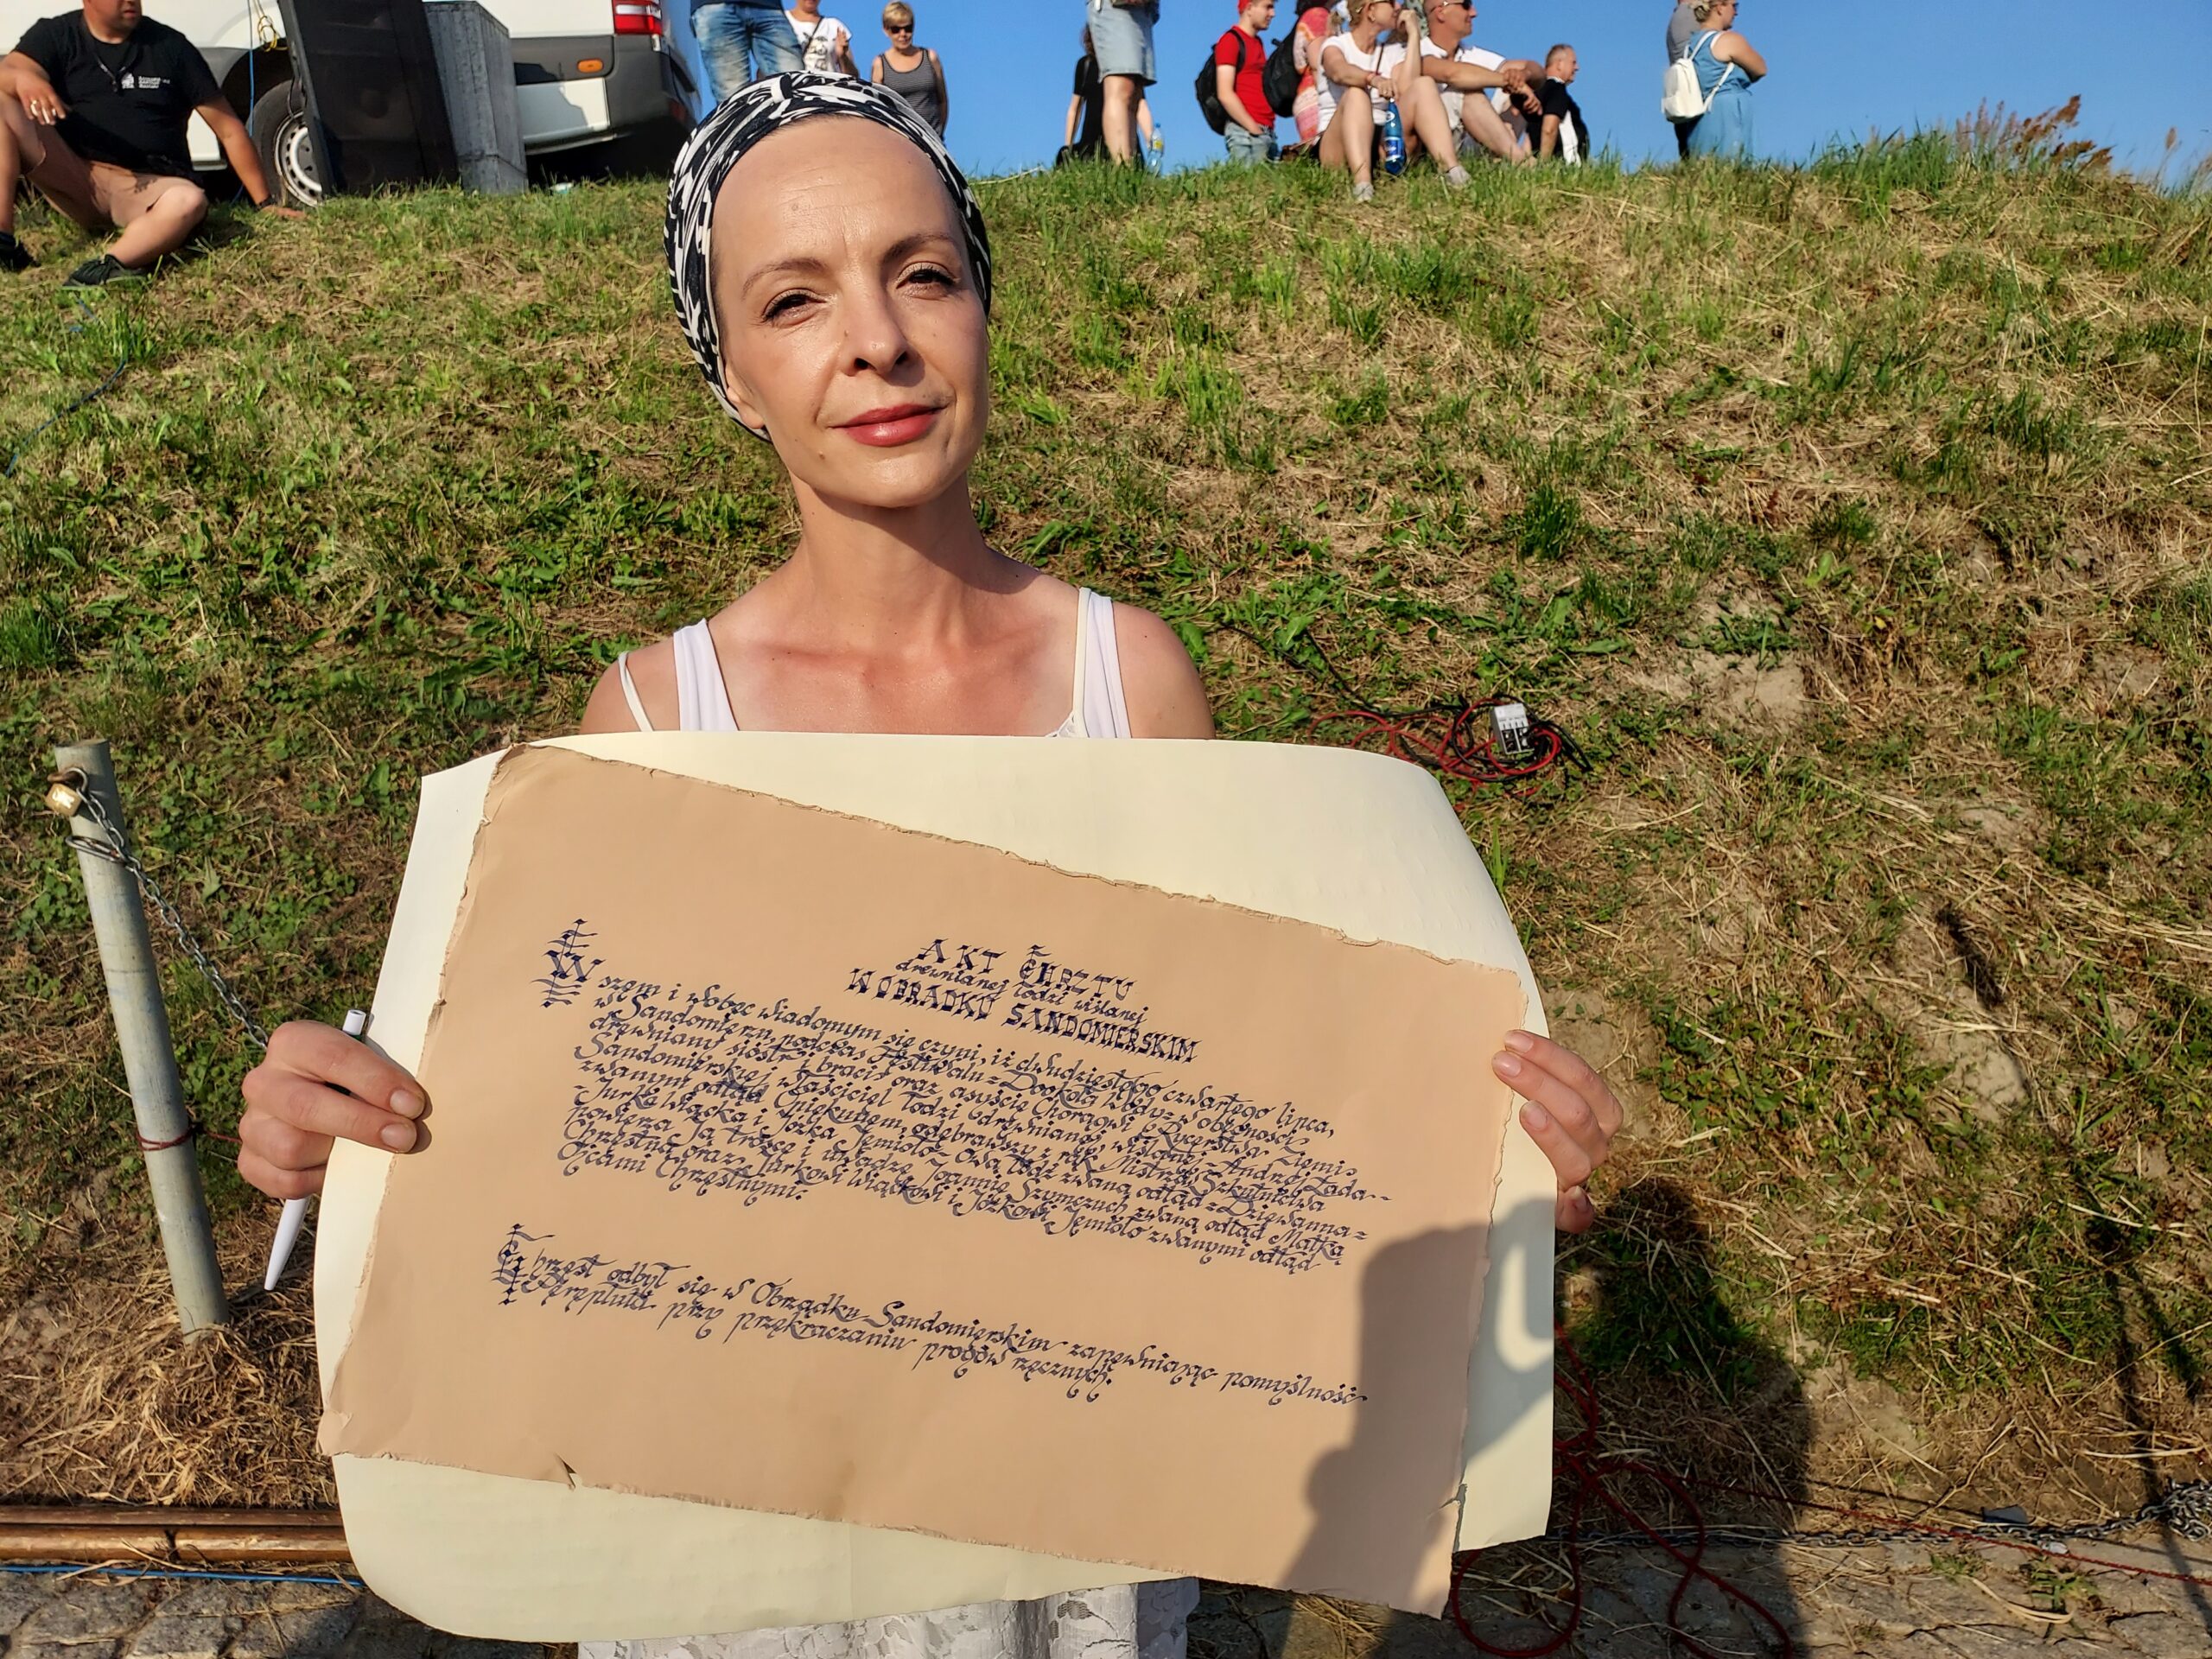 AKT CHRZTU
drewnianej łodzi wiślanej
W OBRĄDKU SANDOMIERSKIM
Wszem i wobec wiadomym się czyni, iż dwudziestego czwartego lipca,
w Sandomierzu podczas Festiwalu Dookoła Wody w obecności
drewnianych sióstr i braci oraz asyście Chorągwi Rycerstwa Ziemi
Sandomierskiej właściciel łodzi drewnianej wiślanej Andrzej
zwanym odtąd Opiekunem, odebrawszy z rąk Mistrza Szkutnictwa
Jurka Wiącka i Józka Jemioło Ową łódź zwaną odtąd Dziewanna
powierza Ją trosce i władze Joannie Szymczuch zwaną odtąd Matką
Chrzestną oraz Jurkowi Wiąckowi i Józkowi Jemioło zwanymi odtąd
Ojcami Chrzestnymi.
Chrzest odbył się w Obrządku Sandomierskim zapewniając pomyślność
przy przekraczaniu progów rzecznych.